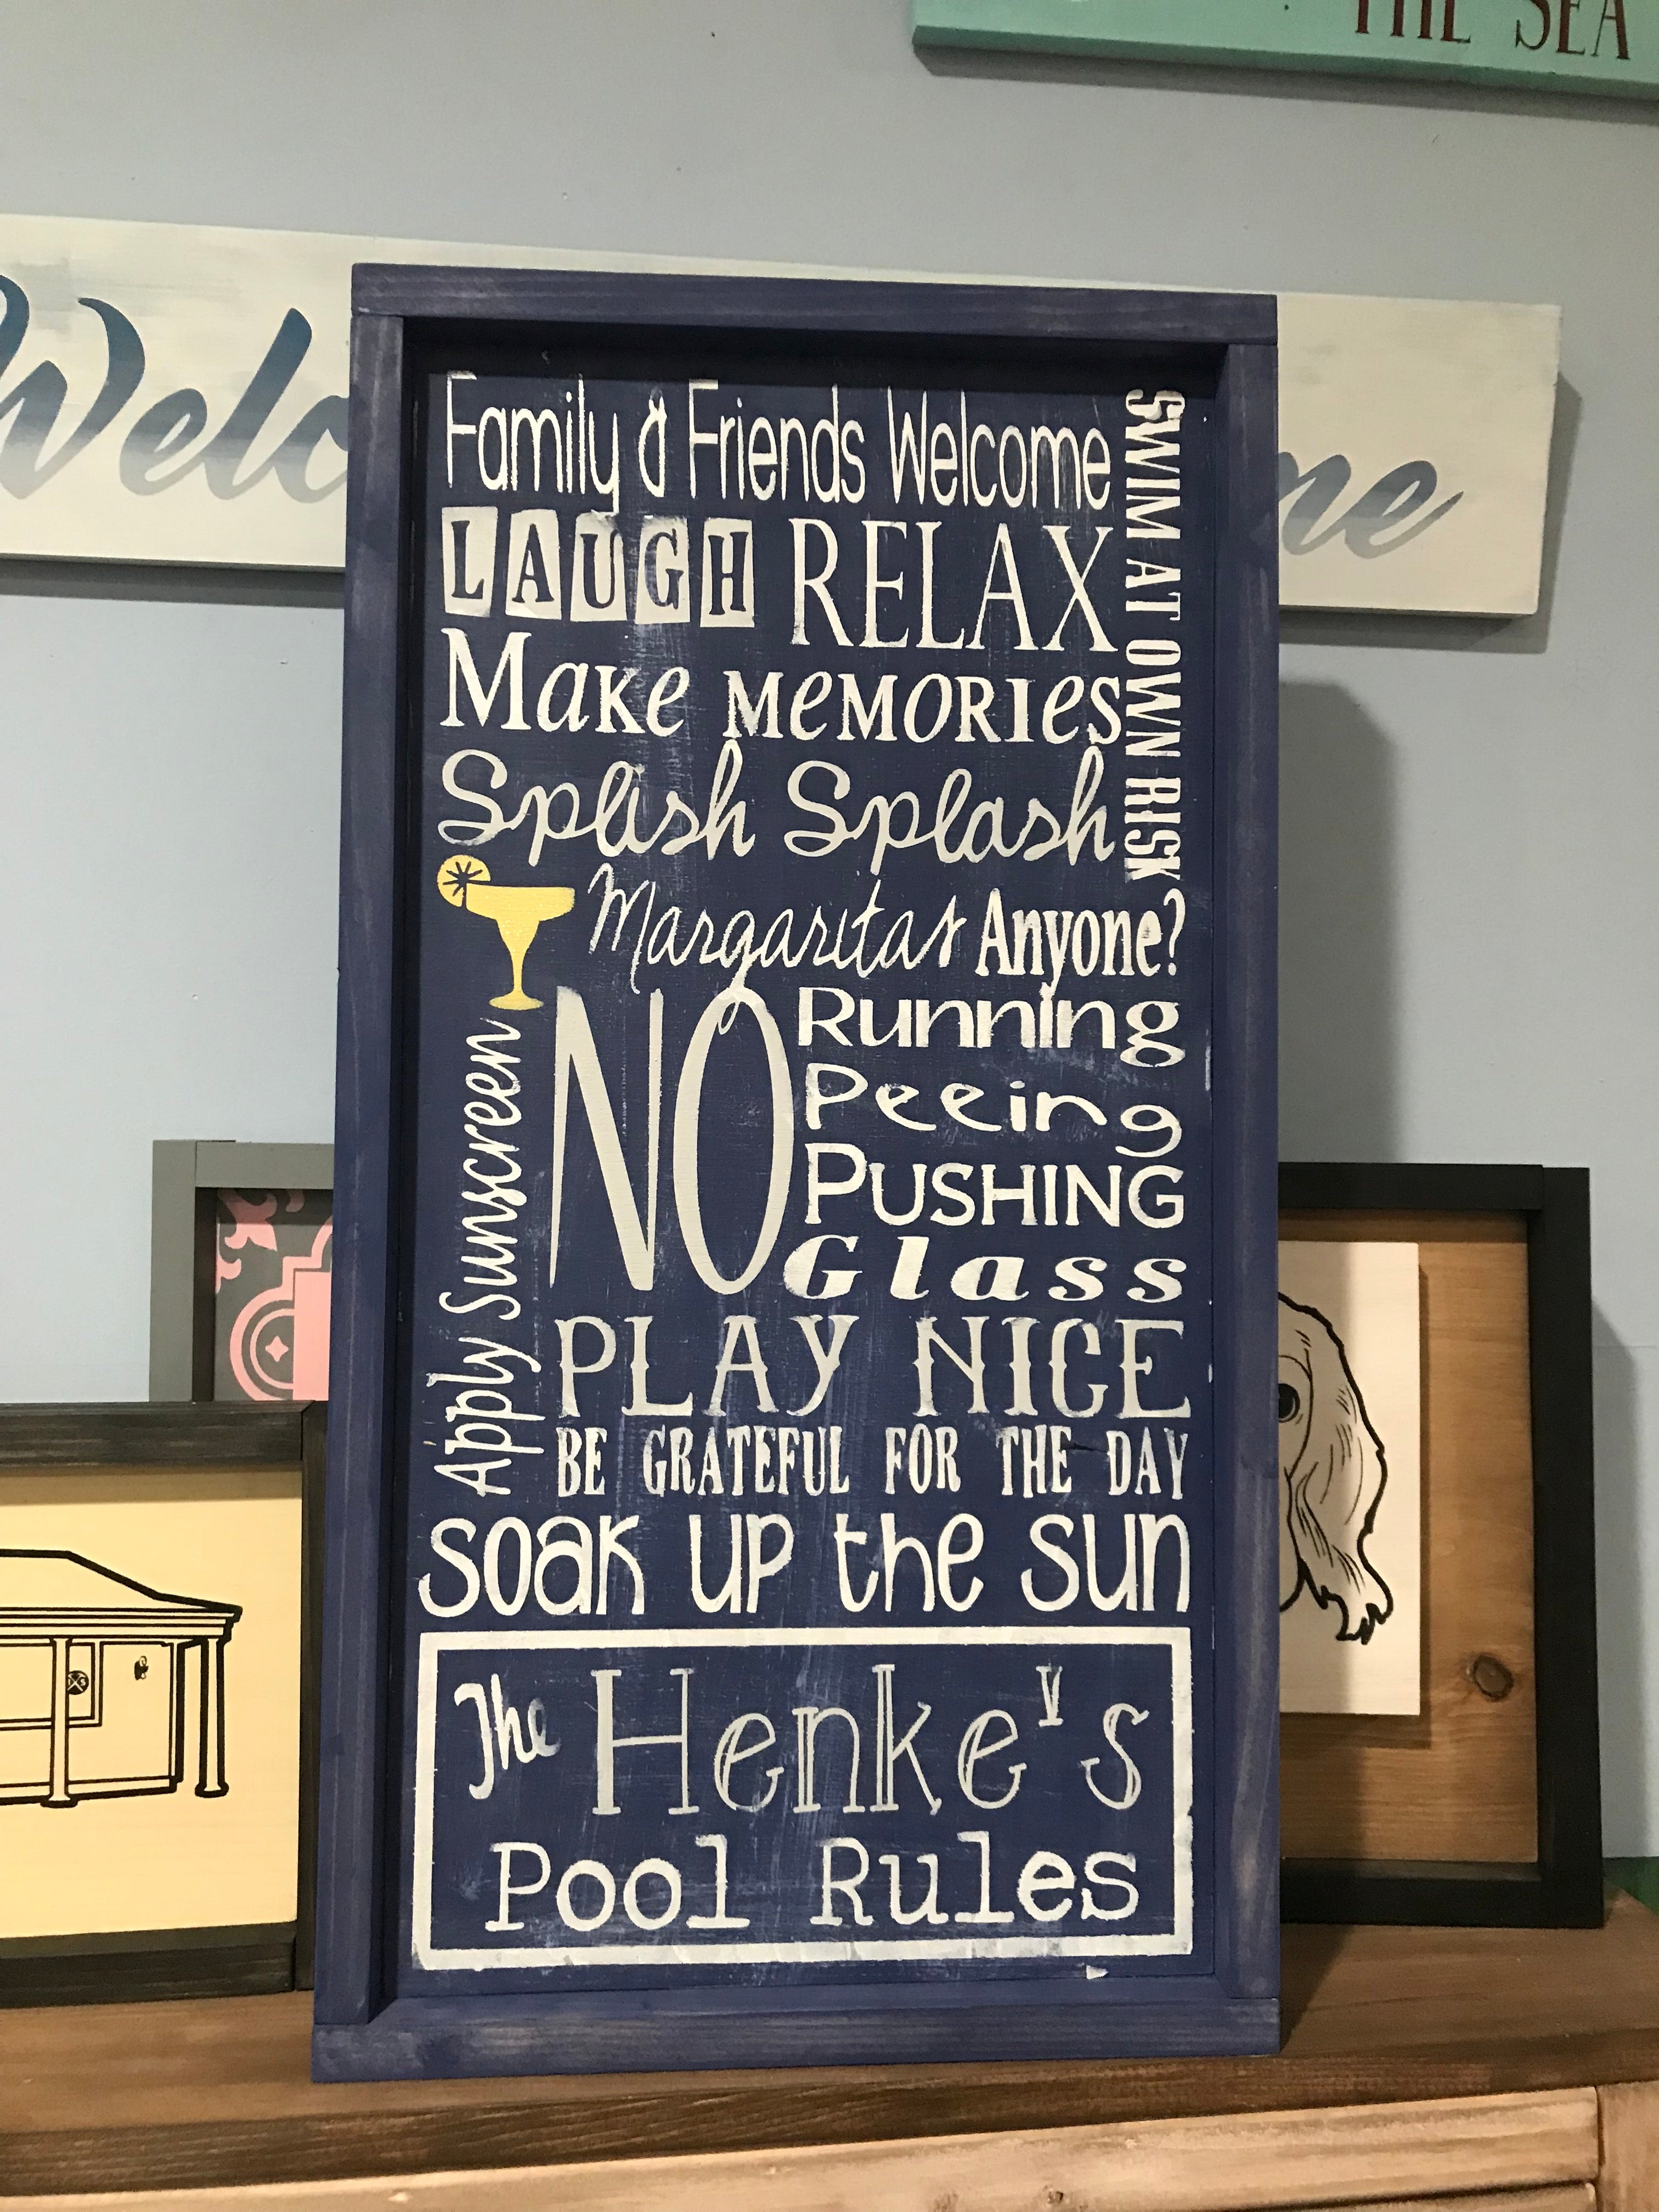 THE SEA
Welco
me
Family & Friends Welcome
SWIM AT OWN RISK
LAUGH RELAX
Make memories
Splish Splash
Margaritas Anyone?
Apply Sunscreen
NO
Running
Peeing
PUSHING
Glass
PLAY NICE
BE GRATEFUL FOR THE DAY
soak up the sun
The Henke's
Pool Rules